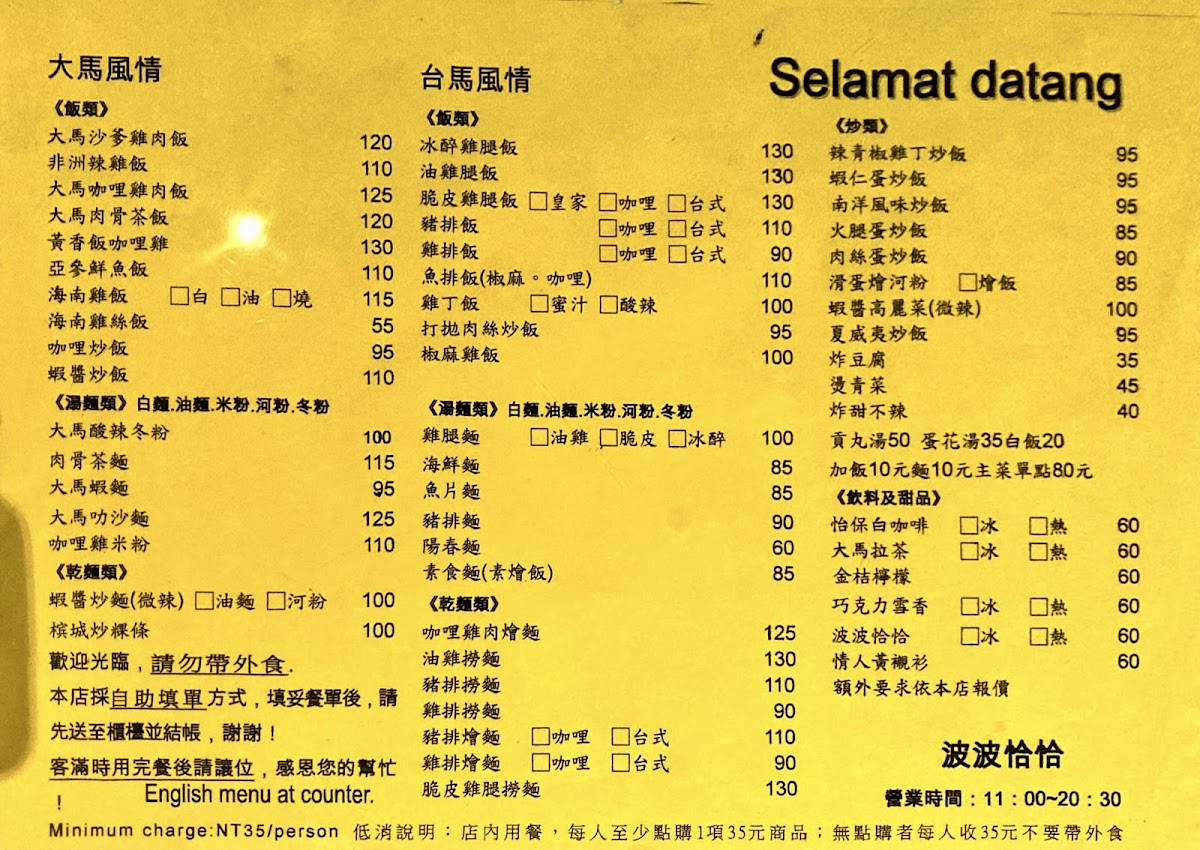 大馬風情
《飯類》
大馬沙爹雞肉飯 120
非洲辣雞飯 110
大馬咖哩雞肉飯 125
大馬肉骨茶飯 120
黃香飯咖哩雞 130
亞參鮮魚飯 110
海南雞飯 □白 □油 □燒 115
海南雞絲飯 55
咖哩炒飯 95
蝦醬炒飯 110
《湯麵類》白麵.油麵.米粉.河粉.冬粉
大馬酸辣冬粉 100
肉骨茶麵 115
大馬蝦麵 95
大馬叻沙麵 125
咖哩雞米粉 110
《乾麵類》
蝦醬炒麵(微辣) □油麵 □河粉 100
檳城炒粿條 100
歡迎光臨，請勿帶外食.
本店採自助填單方式，填妥餐單後，請
先送至櫃檯並結帳，謝謝！
客滿時用完餐後請讓位，感恩您的幫忙
！
English menu at counter.
台馬風情
《飯類》
冰醉雞腿飯 130
油雞腿飯 130
脆皮雞腿飯 □皇家 □咖哩 □台式 130
豬排飯 □咖哩 □台式 110
雞排飯 □咖哩 □台式 90
魚排飯(椒麻。咖哩) 110
雞丁飯 □蜜汁 □酸辣 100
打拋肉絲炒飯 95
椒麻雞飯 100
《湯麵類》白麵.油麵.米粉.河粉.冬粉
雞腿麵 □油雞 □脆皮 □冰醉 100
海鮮麵 85
魚片麵 85
豬排麵 90
陽春麵 60
素食麵(素燴飯) 85
《乾麵類》
咖哩雞肉燴麵 125
油雞撈麵 130
豬排撈麵 110
雞排撈麵 90
豬排燴麵 □咖哩 □台式 110
雞排燴麵 □咖哩 □台式 90
脆皮雞腿撈麵 130
Selamat datang
《炒類》
辣青椒雞丁炒飯 95
蝦仁蛋炒飯 95
南洋風味炒飯 95
火腿蛋炒飯 85
肉絲蛋炒飯 90
滑蛋燴河粉 □燴飯 85
蝦醬高麗菜(微辣) 100
夏威夷炒飯 95
炸豆腐 35
燙青菜 45
炸甜不辣 40
貢丸湯50 蛋花湯35白飯20
加飯10元麵10元主菜單點80元
《飲料及甜品》
怡保白咖啡 □冰 □熱 60
大馬拉茶 □冰 □熱 60
金桔檸檬 60
巧克力雪香 □冰 □熱 60
波波恰恰 □冰 □熱 60
情人黃襯衫 60
額外要求依本店報價
波波恰恰
營業時間：11：00~20：30
Minimum charge:NT35/person 低消說明：店內用餐，每人至少點購1項35元商品；無點購者每人收35元不要帶外食